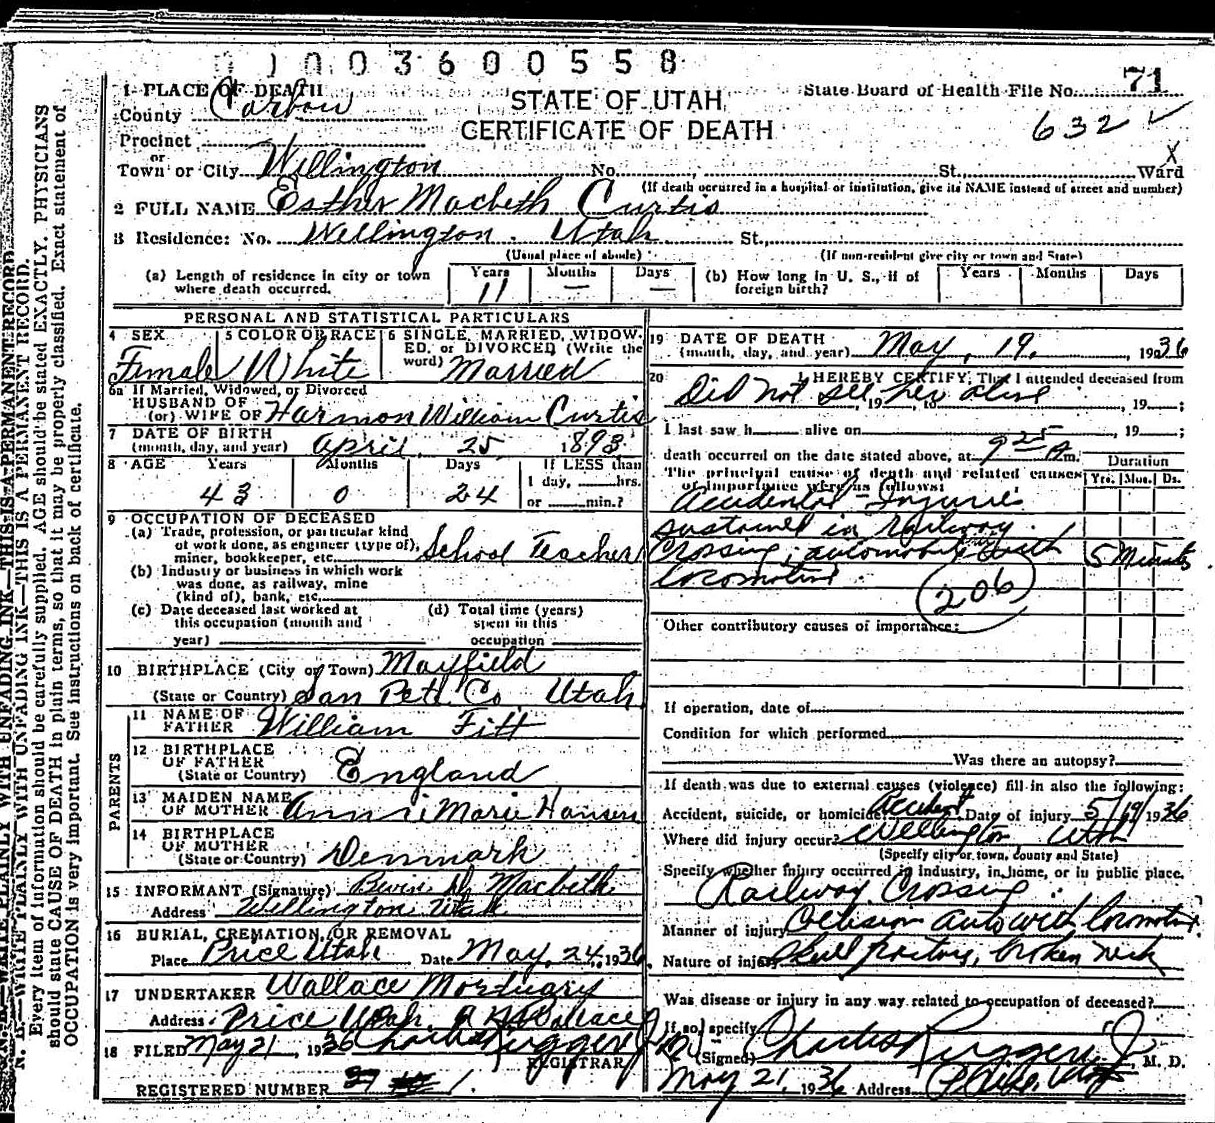 01003600558
1 PLACE OF DEATH
County Carbon
STATE OF UTAH
CERTIFICATE OF DEATH
State Board of Health File No. 71
632
Precinct
or
Town or City Wellington No. St. Ward
X
(If death occurred in a hospital or institution, give its NAME instead of street and number)
2 FULL NAME Esther Macbeth Curtis
3 Residence: No. Wellington. Utah St.,
(Usual place of abode) (If non-resident give city or town and State)
(a) Length of residence in city or town where death occurred. Years 11 Months — Days —
(b) How long in U. S., if of foreign birth? Years Months Days
PERSONAL AND STATISTICAL PARTICULARS
4 SEX Female
5 COLOR OR RACE White
6 SINGLE, MARRIED, WIDOWED, or DIVORCED (Write the word) Married
6a If Married, Widowed, or Divorced
HUSBAND OF
(or) WIFE OF Harmon William Curtis
7 DATE OF BIRTH
(month, day, and year) April 25 1893
8 AGE Years 43 Months 0 Days 24
If LESS than
1 day, hrs.
or min.?
9 OCCUPATION OF DECEASED
(a) Trade, profession, or particular kind
of work done, as engineer (type of),
miner, bookkeeper, etc. School Teacher
(b) Industry or business in which work
was done, as railway, mine
(kind of), bank, etc.
(c) Date deceased last worked at
this occupation (month and
year)
(d) Total time (years)
spent in this
occupation
10 BIRTHPLACE (City or Town) Mayfield
(State or Country) San Pete Co Utah
PARENTS
11 NAME OF
FATHER William Fitt
12 BIRTHPLACE
OF FATHER
(State or Country) England
13 MAIDEN NAME
OF MOTHER Annie Marie Hansen
14 BIRTHPLACE
OF MOTHER
(State or Country) Denmark
15 INFORMANT (Signature) Macbeth
Address Wellington Utah
16 BURIAL, CREMATION, OR REMOVAL
Place Price Utah Date May 24, 1936
17 UNDERTAKER Wallace Mortuary
Address Price Utah. Wallace
18 FILED May 21, 1936 Charles Ruggeri Jr
REGISTRAR
REGISTERED NUMBER 1.
19 DATE OF DEATH
(month, day, and year) May, 19, 1936
20 I HEREBY CERTIFY, That I attended deceased from
Did not see her alive, 19 , to , 19 ;
I last saw h alive on , 19 ;
death occurred on the date stated above, at 9 25 A m.
The principal cause of death and related causes
of importance were as follows:
Duration
Yrs. Mos. Ds.
Accidental - Injuries
sustained in railway
crossing; automobile with
locomotive.
5 Minutes
206
Other contributory causes of importance:
If operation, date of
Condition for which performed
Was there an autopsy?
If death was due to external causes (violence) fill in also the following:
Accident, suicide, or homicide? Accident Date of injury 5/19/1936
Where did injury occur? Wellington Utah
(Specify city or town, county and State)
Specify whether injury occurred in industry, in home, or in public place.
Railway Crossing
Manner of injury Collision auto with locomotive.
Nature of injury Skull fracture, broken neck
Was disease or injury in any way related to occupation of deceased?
If so, specify
(Signed) Charles Ruggeri Jr M. D.
May 21, 1936 Address Price, Utah
N. B.—WRITE PLAINLY WITH UNFADING INK—THIS IS A PERMANENT RECORD.
Every item of information should be carefully supplied. AGE should be stated EXACTLY. PHYSICIANS
should state CAUSE OF DEATH in plain terms, so that it may be properly classified. Exact statement of
OCCUPATION is very important. See instructions on back of certificate.